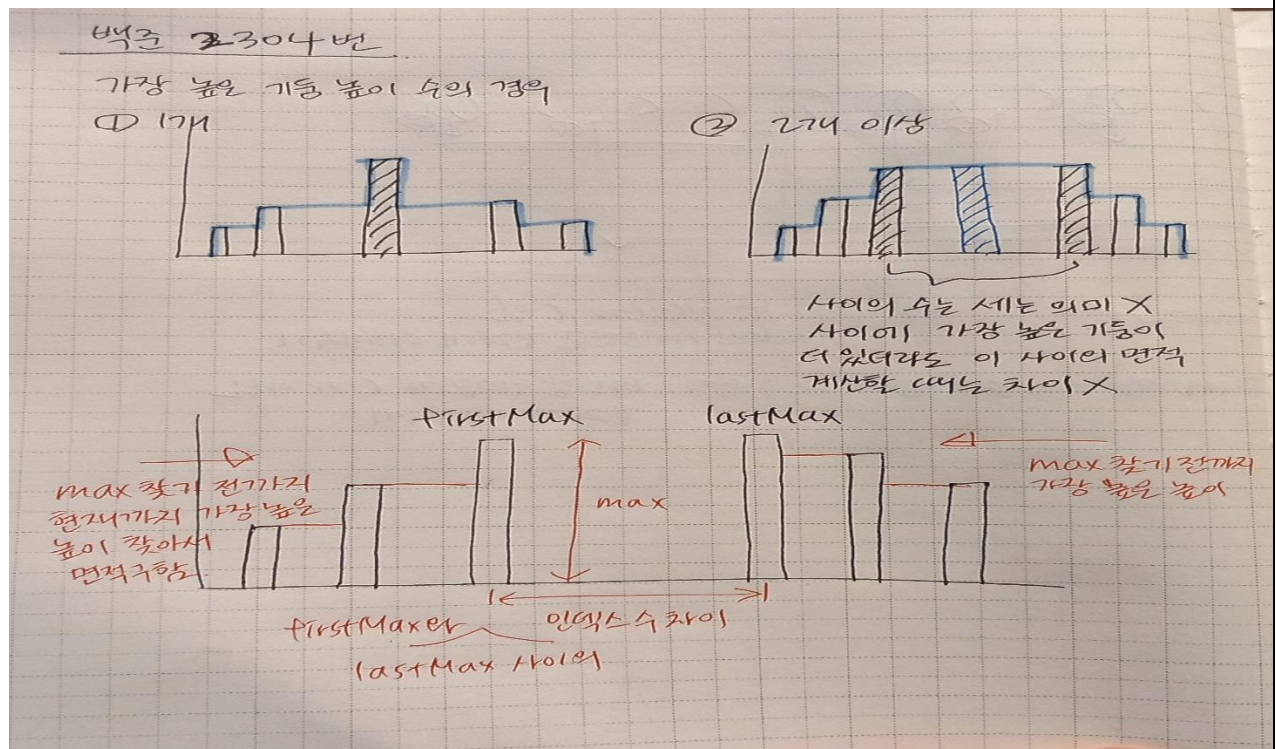 백준 2304번
가장 높은 기둥 높이 수의 경우
① 1개
② 2개 이상
사이의 수는 세는 의미 X
사이에 가장 높은 기둥이
더 있더라도 이 사이의 면적
계산할 때는 차이 X
firstMax
lastMax
max 찾기 전까지
현재까지 가장 높은
높이 잡아서
면적구함
max
max 찾기 전까지
가장 높은 높이
firstMax와
인덱스 수 차이
lastMax 사이의